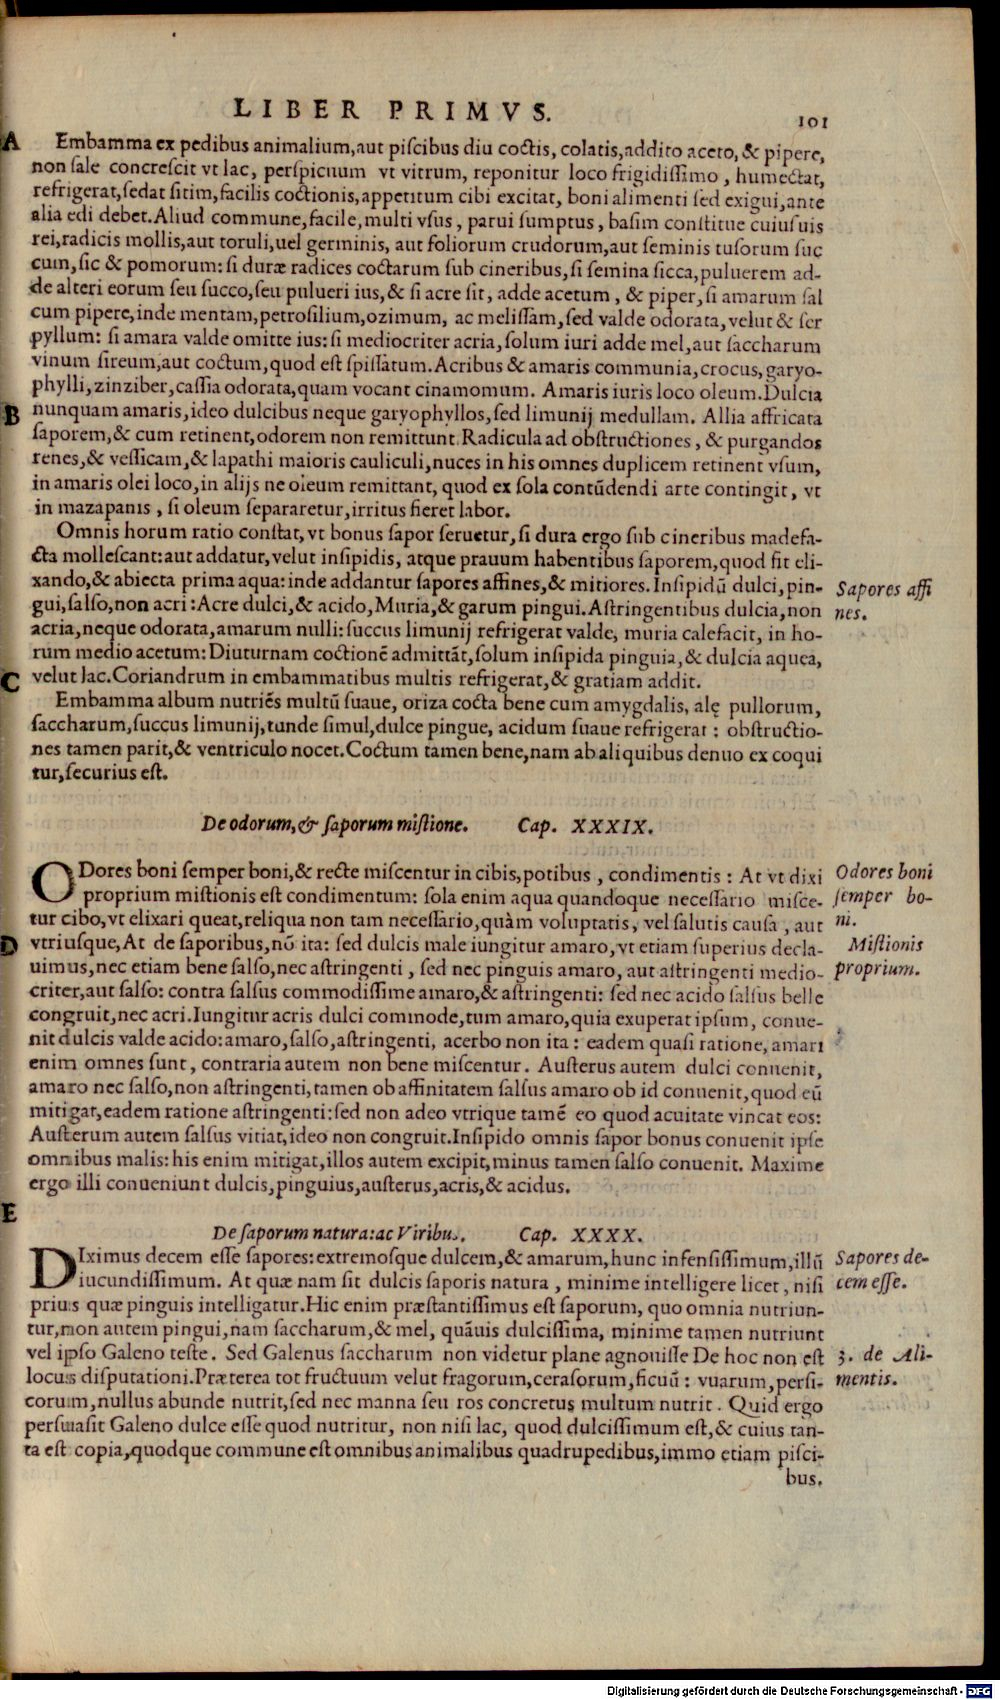 LIBER PRIMVS.
101
A
Embamma ex pedibus animalium,aut piſcibus diu coctis, colatis,addito aceto, & pipere,
non ſale concreſcit vt lac, perſpicuum vt vitrum, reponitur loco frigidiſſimo, humectat,
refrigerat,ſedat ſitim,facilis coctionis,appetitum cibi excitat, boni alimenti ſed exigui,ante
alia edi debet.Aliud commune,facile,multi vſus, parui ſumptus, baſim conſtitue cuiuſuis
rei,radicis mollis,aut toruli,uel germinis, aut foliorum crudorum,aut ſeminis tuſorum ſuc
cum,ſic & pomorum: ſi duræ radices coctarum ſub cineribus,ſi ſemina ſicca,puluerem ad-
de alteri eorum ſeu ſucco,ſeu pulueri ius,& ſi acre ſit, adde acetum, & piper,ſi amarum ſal
cum pipere,inde mentam,petroſilium,ozimum, ac meliſſam,ſed valde odorata,velut & ſer
pyllum: ſi amara valde omitte ius:ſi mediocriter acria,ſolum iuri adde mel,aut ſaccharum
vinum ſireum,aut coctum,quod eſt ſpiſſatum.Acribus & amaris communia,crocus,garyo-
phylli,zinziber,caſſia odorata,quam vocant cinamomum. Amaris iuris loco oleum.Dulcia
B
nunquam amaris,ideo dulcibus neque garyophyllos,ſed limunij medullam. Allia affricata
ſaporem,& cum retinent,odorem non remittunt.Radicula ad obſtructiones, & purgandos
renes,& veſſicam,& lapathi maioris cauliculi,nuces in his omnes duplicem retinent vſum,
in amaris olei loco,in alijs ne oleum remittant, quod ex ſola contūdendi arte contingit, vt
in mazapanis, ſi oleum ſepararetur,irritus fieret labor.
Omnis horum ratio conſtat,vt bonus ſapor ſeruetur,ſi dura ergo ſub cineribus madefa-
cta molleſcant:aut addatur,velut inſipidis, atque prauum habentibus ſaporem,quod fit eli-
xando,& abiecta prima aqua:inde addantur ſapores affines,& mitiores.Inſipidū dulci,pin-
Sapores affi
gui,ſalſo,non acri:Acre dulci,& acido,Muria,& garum pingui.Aſtringentibus dulcia,non
nes.
acria,neque odorata,amarum nulli:ſuccus limunij refrigerat valde, muria calefacit, in ho-
rum medio acetum:Diuturnam coctionē admittāt,ſolum inſipida pinguia,& dulcia aquea,
C
velut lac.Coriandrum in embammatibus multis refrigerat,& gratiam addit.
Embamma album nutriēs multū ſuaue, oriza cocta bene cum amygdalis, alę pullorum,
ſaccharum,ſuccus limunij,tunde ſimul,dulce pingue, acidum ſuaue refrigerat: obſtructio-
nes tamen parit,& ventriculo nocet.Coctum tamen bene,nam ab aliquibus denuo excoqui
tur,ſecurius eſt.
De odorum,& ſaporum miſtione. Cap. XXXIX.
ODores boni ſemper boni,& recte miſcentur in cibis,potibus, condimentis: At vt dixi
Odores boni
proprium miſtionis eſt condimentum: ſola enim aqua quandoque neceſſario miſce-
ſemper bo-
tur cibo,vt elixari queat,reliqua non tam neceſſario,quàm voluptatis, vel ſalutis cauſa, aut
ni.
D
vtriuſque,At de ſaporibus,nō ita: ſed dulcis male iungitur amaro,vt etiam ſuperius decla-
Miſtionis
uimus,nec etiam bene ſalſo,nec aſtringenti, ſed nec pinguis amaro, aut aſtringenti medio-
proprium.
criter,aut ſalſo: contra ſalſus commodiſſime amaro,& aſtringenti: ſed nec acido ſalſus belle
congruit,nec acri.Iungitur acris dulci commode,tum amaro,quia exuperat ipſum, conue-
nit dulcis valde acido:amaro,ſalſo,aſtringenti, acerbo non ita: eadem quaſi ratione,amari
enim omnes ſunt, contraria autem non bene miſcentur. Auſterus autem dulci conuenit,
amaro nec ſalſo,non aſtringenti,tamen ob affinitatem ſalſus amaro ob id conuenit,quod eū
mitigat,eadem ratione aſtringenti:ſed non adeo vtrique tamē eo quod acuitate vincat eos:
Auſterum autem ſalſus vitiat,ideo non congruit.Inſipido omnis ſapor bonus conuenit ipſe
omnibus malis: his enim mitigat,illos autem excipit,minus tamen ſalſo conuenit. Maxime
ergo illi conueniunt dulcis,pinguius,auſterus,acris,& acidus.
E
De ſaporum natura:ac Viribus. Cap. XXXX.
DIximus decem eſſe ſapores:extremoſque dulcem,& amarum,hunc infenſiſſimum,illū
Sapores de-
iucundiſſimum. At quæ nam ſit dulcis ſaporis natura, minime intelligere licet, niſi
cem eſſe.
prius quæ pinguis intelligatur.Hic enim præſtantiſſimus eſt ſaporum, quo omnia nutriun-
tur,non autem pingui,nam ſaccharum,& mel, quāuis dulciſſima, minime tamen nutriunt
vel ipſo Galeno teſte. Sed Galenus ſaccharum non videtur plane agnouiſſe De hoc non eſt
3. de Ali-
locus diſputationi.Præterea tot fructuum velut fragorum,ceraſorum,ficuū: vuarum,perſi-
mentis.
corum,nullus abunde nutrit,ſed nec manna ſeu ros concretus multum nutrit. Quid ergo
perſuaſit Galeno dulce eſſe quod nutritur, non niſi lac, quod dulciſſimum eſt,& cuius tan-
ta eſt copia,quodque commune eſt omnibus animalibus quadrupedibus,immo etiam piſci-
bus.
Digitalisierung gefördert durch die Deutsche Forschungsgemeinschaft - DFG